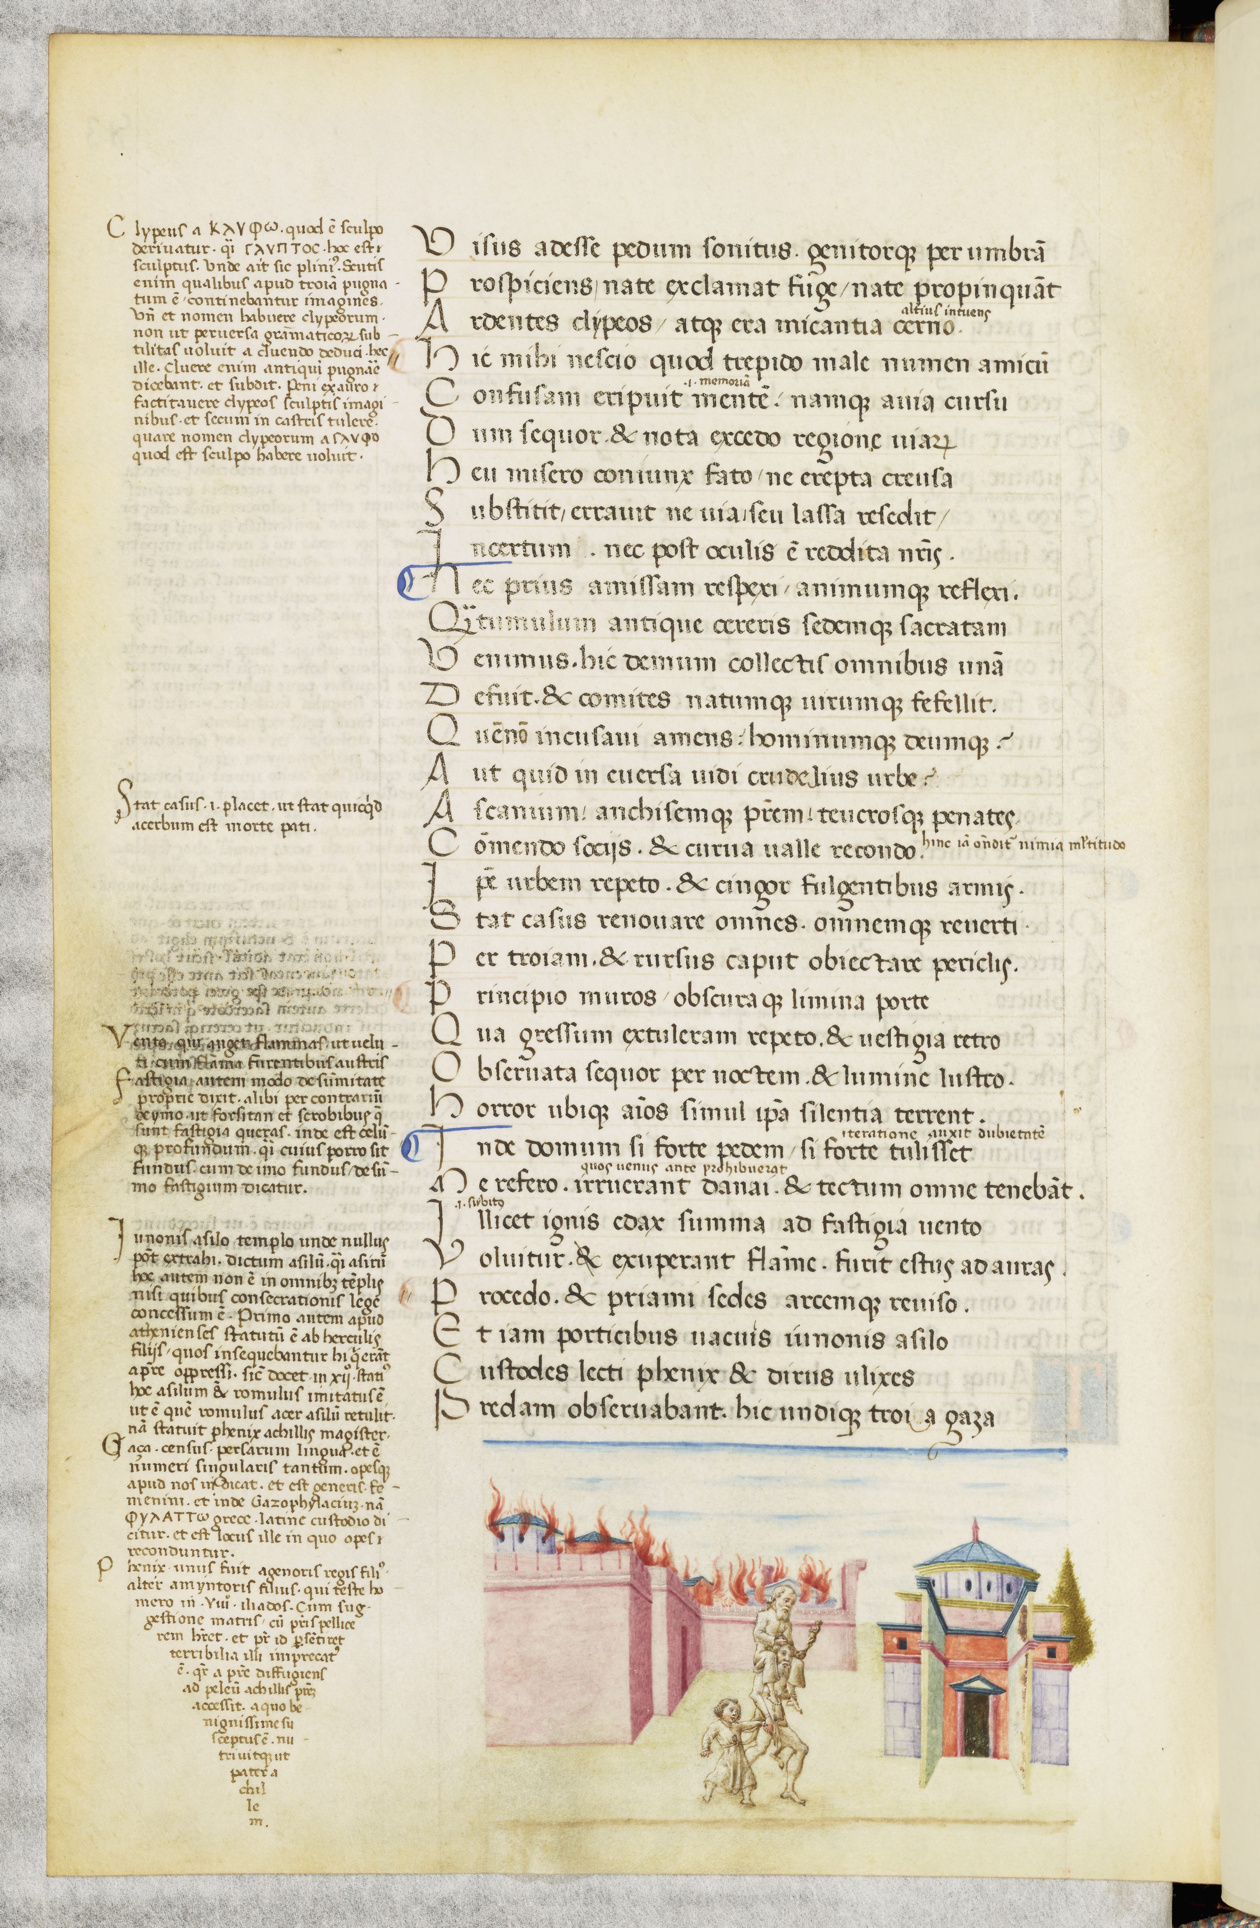 Clypeus a ΚΛΥΦΩ. quod ē sculpo
deriuatur. qi͏̈ ΓΛΥΠΤΟC. hoc est
sculptus. Vnde ait sic plini͛. scutis
enim qualibus apud troiā pugna-
tum ē continebantur imagines.
Vn̄ et nomen habuere clypeorum.
non ut peruersa grāmaticoꝝ sub-
tilitas uoluit a cluendo deduci. hec
ille. Cluere enim antiqui pugnāe
dicebant. et subdit. Peni ex auro
factitauere clypeos sculptis imagi-
nibus. et secum in castris tulere.
quare nomen clypeorum a ΓΛΥΦΟ
quod est sculpo habere uoluit.
Visus adesse pedum sonitus. genitorqꝫ per umbrā
Prospiciens, nate exclamat fuge, nate propinquāt
altius intuens
Ardentes clypeos, atqꝫ era micantia cerno.
Hic mihi nescio quod trepido male numen amicū
.i. memoriā
Confusam eripuit mentē. namqꝫ auia cursu
Dum sequor. & nota excedo regione uiaꝝ
Heu misero coniunx fato, ne erepta creusa
Substitit, errauit ne uia, seu lassa resedit,
Incertum. nec post oculis ē reddita nr̄is.
Nec prius amissam respexi, animumqꝫ reflexi.
Qi͏̈ tumulum antique cereris sedemqꝫ sacratam
Venimus. hic demum collectis omnibus unā
Defuit. & comites natumqꝫ uirumqꝫ fefellit.
Quē nō incusaui amens. hominumqꝫ deumqꝫ?
Aut quid in euersa uidi crudelius urbe?
Ascanium, anchisemqꝫ pr̄em, teucrosqꝫ penates
Cōmendo socijs. & curua ualle recondo.
hinc iā oñdit͛ nimia ml̄titudo
Stat casus .i. placet. ut stat quicq͛d
acerbum est morte pati.
Ip̄e urbem repeto. & cingor fulgentibus armis.
Stat casus renouare omnes. omnemqꝫ reuerti
Per troiam. & rursus caput obiectare periclis.
Principio muros, obscuraqꝫ limina porte
Qua gressum extuleram repeto. & uestigia retro
Obseruata sequor per noctem. & lumine lustro.
Horror ubiqꝫ aīos simul ip̄a silentia terrent.
iteratione auxit dubietatē
Inde domum si forte pedem, si forte tulisset
quos uenus ante prohibuerat
Me refero. irruerant danai. & tectum omne tenebāt.
.i. subito
Illicet ignis edax summa ad fastigia uento
Voluitur. & exuperant flāme. furit estus ad auras.
Procedo. & priami sedes arcemqꝫ reuiso.
Et iam porticibus uacuis iunonis asilo
Custodes lecti phenix & dirus ulixes
Predam obseruabant. hic undiqꝫ troia gaza
Vento. qui auget flammas. ut uelu-
ti cum flāma furentibus austris
Fastigia, autem modo de sumitate
proprie dixit. alibi per contrariū
de ymo. ut forsitan et scrobibus q̄
sunt fastigia queras. inde est celū-
qꝫ profundum. qi cuius porro sit
fundus. cum de imo fundus, de sū-
mo fastigium dicatur.
Iunonis asilo templo unde nullus
pōt extrahi. dictum asilū. qi͏̈ asirū
hoc autem non ē in omnibꝫ tēplis
nisi quibus consecrationis lege
concessum ē. Primo autem apud
athenienses statutū ē ab herculis
filijs, quos insequebantur hi q̄ erāt
a pr̄e oppressi. sic̄ docet in xij͛. stati͛
hoc asilum & romulus imitatus ē
ut ē quē romulus acer asilū retulit.
nā statuit phenix achillis magister.
Gaza. census. persarum lingua. et ē
numeri singularis tantum. opesqꝫ
apud nos indicat. et est generis. fe-
menini. et inde Gazophylaciuꝫ. nā
ΦΥΛΑΤΤΩ grece. latine custodio di-
citur. et est locus ille in quo opes
reconduntur.
Phenix. unus fuit agenoris regis fili͛.
alter amyntoris filius. qui teste ho-
mero in .viii. iliados. Cum sug-
gestione matris, cū pr̄is pellice
rem hr̄et. et pr̄ id p̄sētiret
terribilia illi imprecat͛
ē. qr̄ a pr̄e diffugiens
ad peleū achillis pr̄eꝫ
accessit. a quo be-
nignissime su
sceptus ē. nu-
triuitqꝫ ut
pater a
chil
le
m.